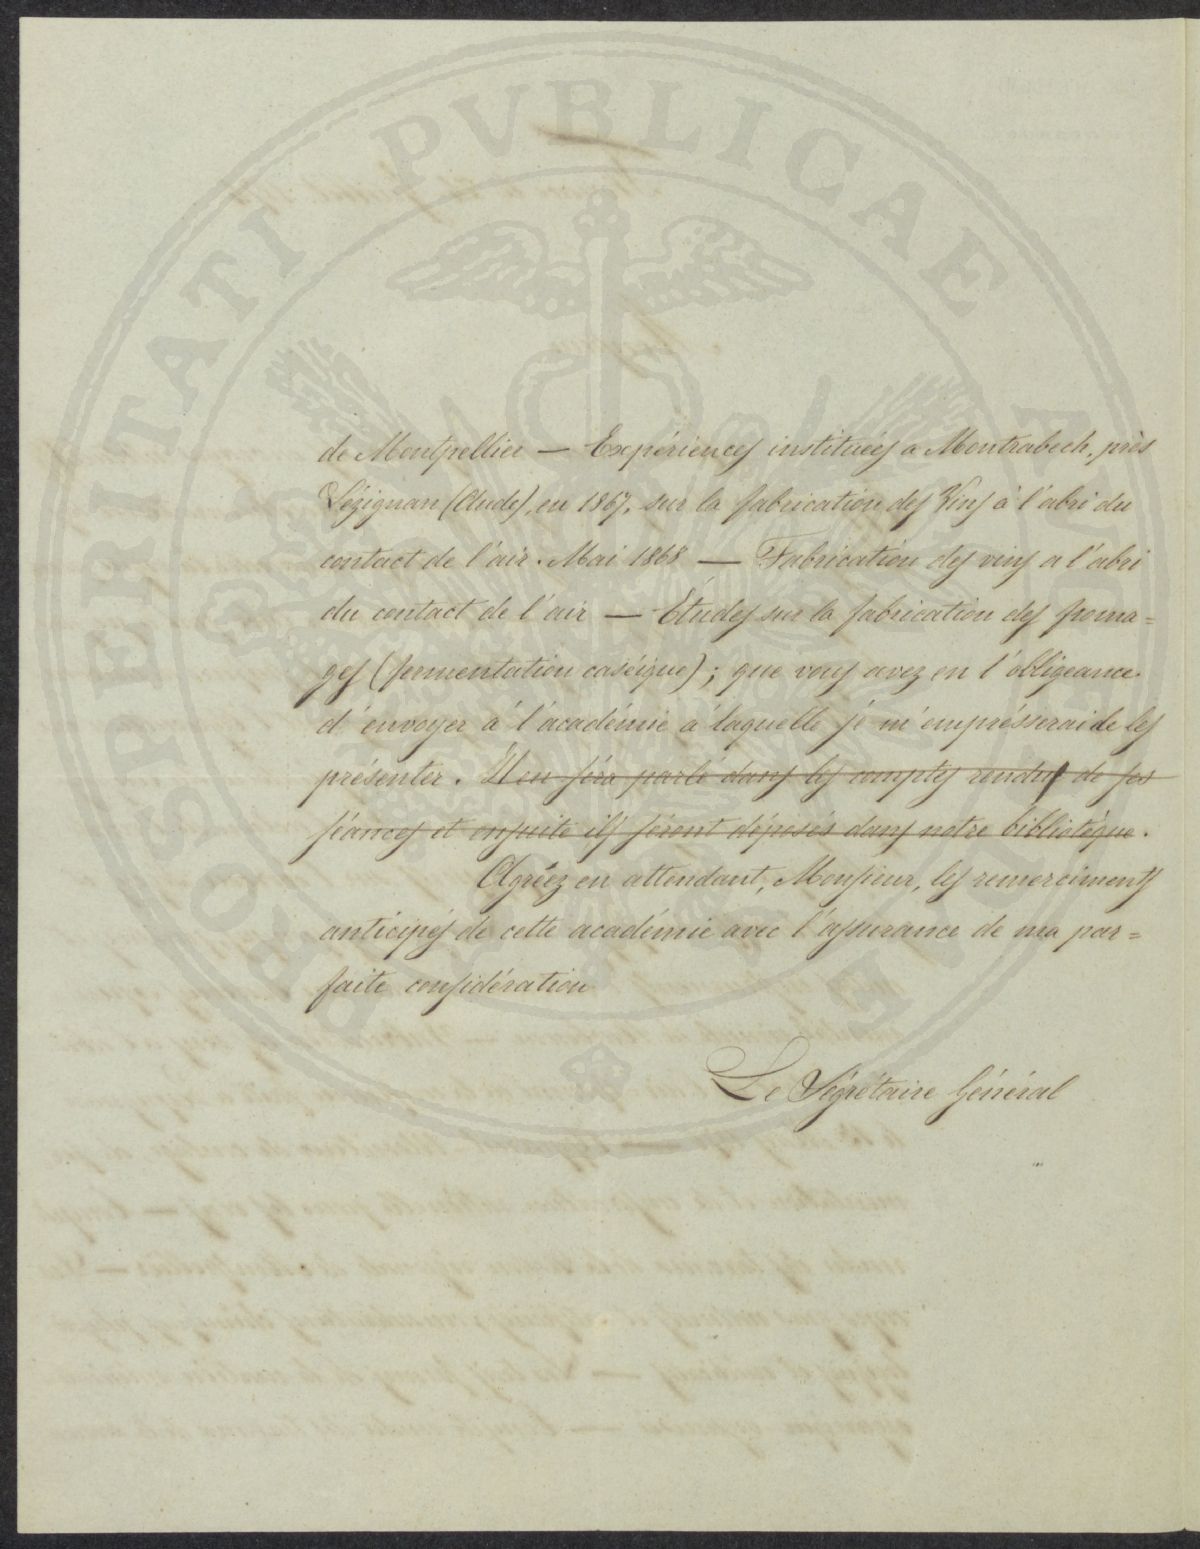 de Montpellier — Expériences instituées a Montrabech, près
Lézignan (Aude), en 1867, sur la fabrication des Vins à l'abri du
contact de l'air. Mai 1868 — Fabrication des vins a l'abri
du contact de l'air — Études sur la fabrication des froma=
ges (fermentation caséique); que vous avez en l'obligeance
d'envoyer à l'académie à laquelle je m'emprésserai de les
présenter. Il en séra parlé dans les comptes rendus de ses
séances et ensuite ils séront déposés dans notre bibliotèque.
Agréez en attendant, Monsieur, les remerciments
anticipés de cette académie avec l'assurance de ma par=
faite considération
Le Ségrétaire Général
PROSPERITATI PVBLICAE